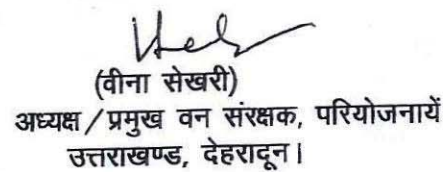 (वीना सेखरी)
अध्यक्ष/प्रमुख वन संरक्षक, परियोजनायें
उत्तराखण्ड, देहरादून।